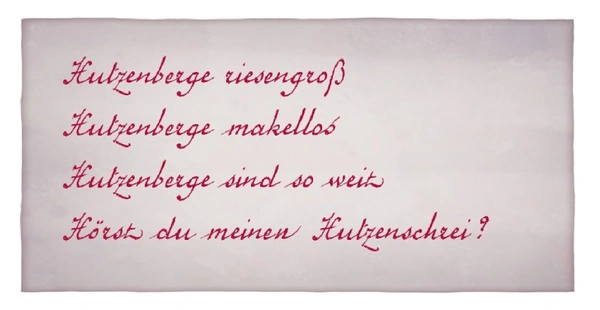 Hutzenberge riesengroß
Hutzenberge makellos
Hutzenberge sind so weit
Hörst du meinen Hutzenschrei?